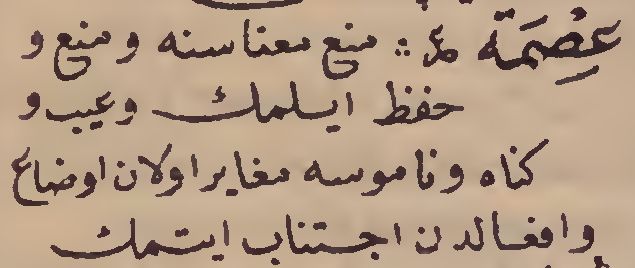 عِصْمَة ع؞ منع معناسنه و منع و
حفظ ايلمك و عيب و
كناه و ناموسه مغاير اولان اوضاع
و افعالدن اجتناب ايتمك